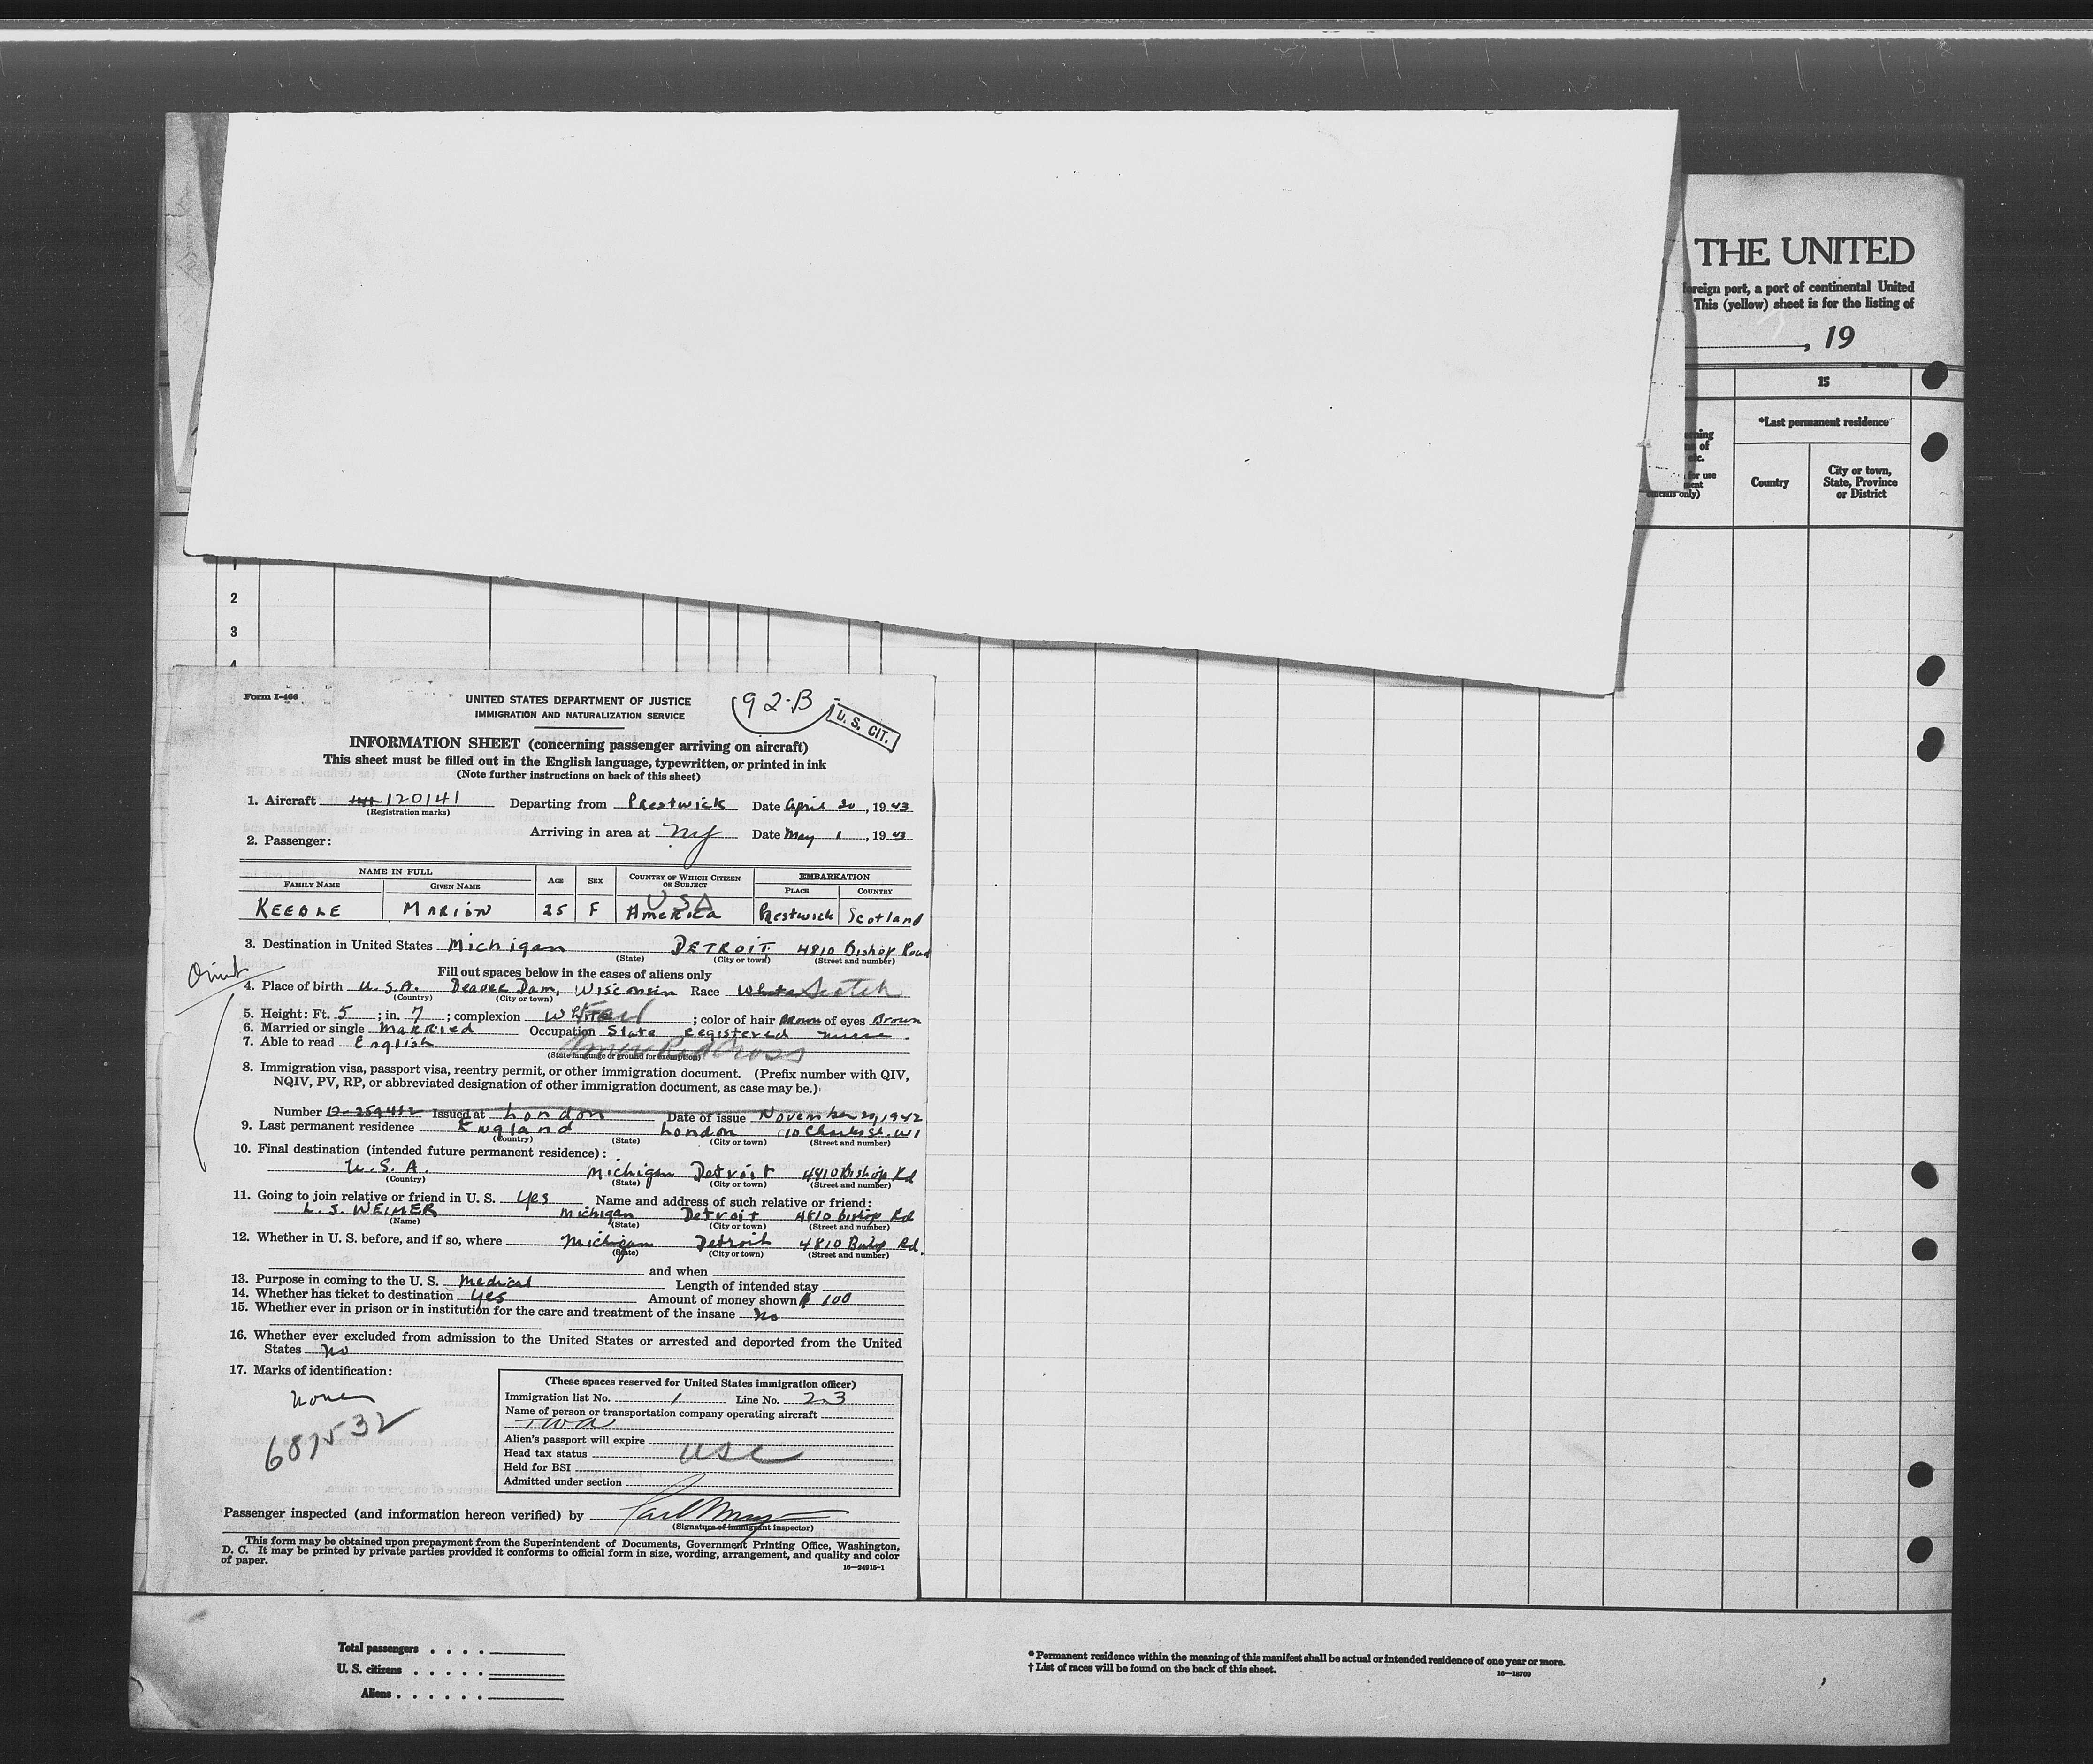 THE UNITED
foreign port, a port of continental United
This (yellow) sheet is for the listing of
, 19
15
*Last permanent residence
Country
City or town, State, Province or District
only)
1
2
3
4
Form I-466
UNITED STATES DEPARTMENT OF JUSTICE
IMMIGRATION AND NATURALIZATION SERVICE
92-B
U. S. CIT.
INFORMATION SHEET (concerning passenger arriving on aircraft)
This sheet must be filled out in the English language, typewritten, or printed in ink
(Note further instructions on back of this sheet)
1. Aircraft 120141 Departing from Prestwick Date April 30, 1943
(Registration marks)
Arriving in area at NY Date May 1, 1943
2. Passenger:
NAME IN FULL
FAMILY NAME GIVEN NAME AGE SEX COUNTRY OF WHICH CITIZEN OR SUBJECT EMBARKATION
PLACE COUNTRY
USA
KEEDLE MARION 25 F America Prestwick Scotland
3. Destination in United States Michigan DETROIT 4810 Bishop Road
(State) (City or town) (Street and number)
Fill out spaces below in the cases of aliens only
4. Place of birth U.S.A. Beaver Dam, Wisconsin Race White Scotch
(Country) (City or town)
5. Height: Ft. 5; in. 7; complexion White; color of hair Brown of eyes Brown
6. Married or single Married Occupation State registered nurse
7. Able to read English Amer Red Cross
(State language or ground for exemption)
8. Immigration visa, passport visa, reentry permit, or other immigration document. (Prefix number with QIV,
NQIV, PV, RP, or abbreviated designation of other immigration document, as case may be.)
Number Issued at London Date of issue November 20, 1942
9. Last permanent residence England London 10 Charles St. W1
(Country) (State) (City or town) (Street and number)
10. Final destination (intended future permanent residence):
U.S.A. Michigan Detroit 4810 Bishop Rd
(Country) (State) (City or town) (Street and number)
11. Going to join relative or friend in U. S. Yes Name and address of such relative or friend:
L. S. WEIMER Michigan Detroit 4810 Bishop Rd
(Name) (State) (City or town) (Street and number)
12. Whether in U. S. before, and if so, where Michigan Detroit 4810 Bishop Rd.
(State) (City or town) (Street and number)
and when
13. Purpose in coming to the U. S. Medical Length of intended stay
14. Whether has ticket to destination Yes Amount of money shown $ 100
15. Whether ever in prison or in institution for the care and treatment of the insane No
16. Whether ever excluded from admission to the United States or arrested and deported from the United
States No
17. Marks of identification:
None
687532
(These spaces reserved for United States immigration officer)
Immigration list No. 1 Line No. 23
Name of person or transportation company operating aircraft
TWA
Alien's passport will expire
Head tax status USC
Held for BSI
Admitted under section
Passenger inspected (and information hereon verified) by
(Signature of immigrant inspector)
This form may be obtained upon prepayment from the Superintendent of Documents, Government Printing Office, Washington,
D. C. It may be printed by private parties provided it conforms to official form in size, wording, arrangement, and quality and color
of paper.
16—24915-1
Total passengers
U. S. citizens
Aliens
* Permanent residence within the meaning of this manifest shall be actual or intended residence of one year or more.
† List of races will be found on the back of this sheet.
16—18709